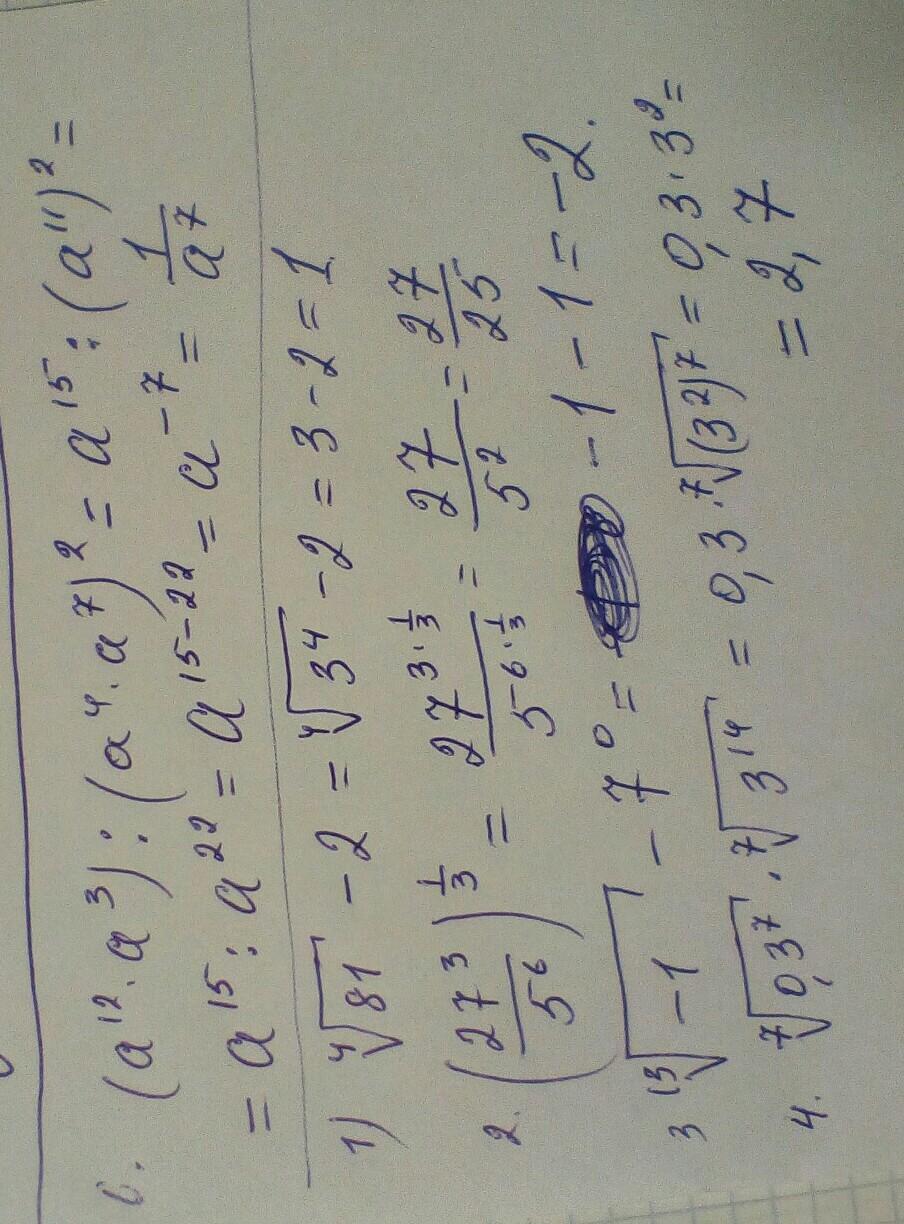 6. (a¹²·a³):(a⁴·a⁷)² = a¹⁵:(a¹¹)² =
= a¹⁵:a²² = a¹⁵⁻²² = a⁻⁷ = 1/a⁷
1) ⁴√81 - 2 = ⁴√3⁴ - 2 = 3 - 2 = 1
2. (27³/5⁶)^(1/3) = 27^(3·1/3)/5^(6·1/3) = 27/5² = 27/25
3 ¹³√-1 - 7⁰ = -1 - 1 = -2.
4. ⁷√0,3⁷ · ⁷√3¹⁴ = 0,3 · ⁷√(3²)⁷ = 0,3·3² =
= 2,7